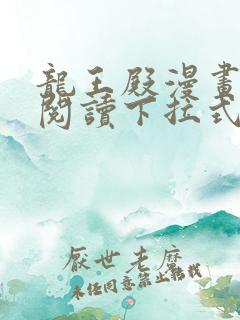 龍王殿漫畫
閱讀下拉式
厭世老麽
未經同意禁止轉載